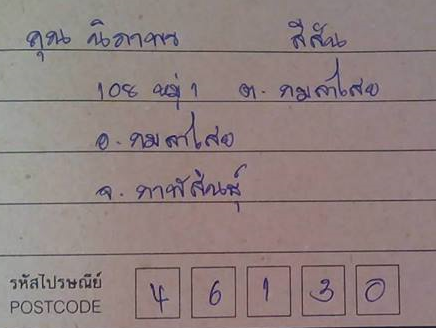 คุณ นิภาพร สีสัน
108 หมู่ 1 ต. กมลาไสย
อ. กมลาไสย
จ. กาฬสินธุ์
รหัสไปรษณีย์
POSTCODE
4 6 1 3 0